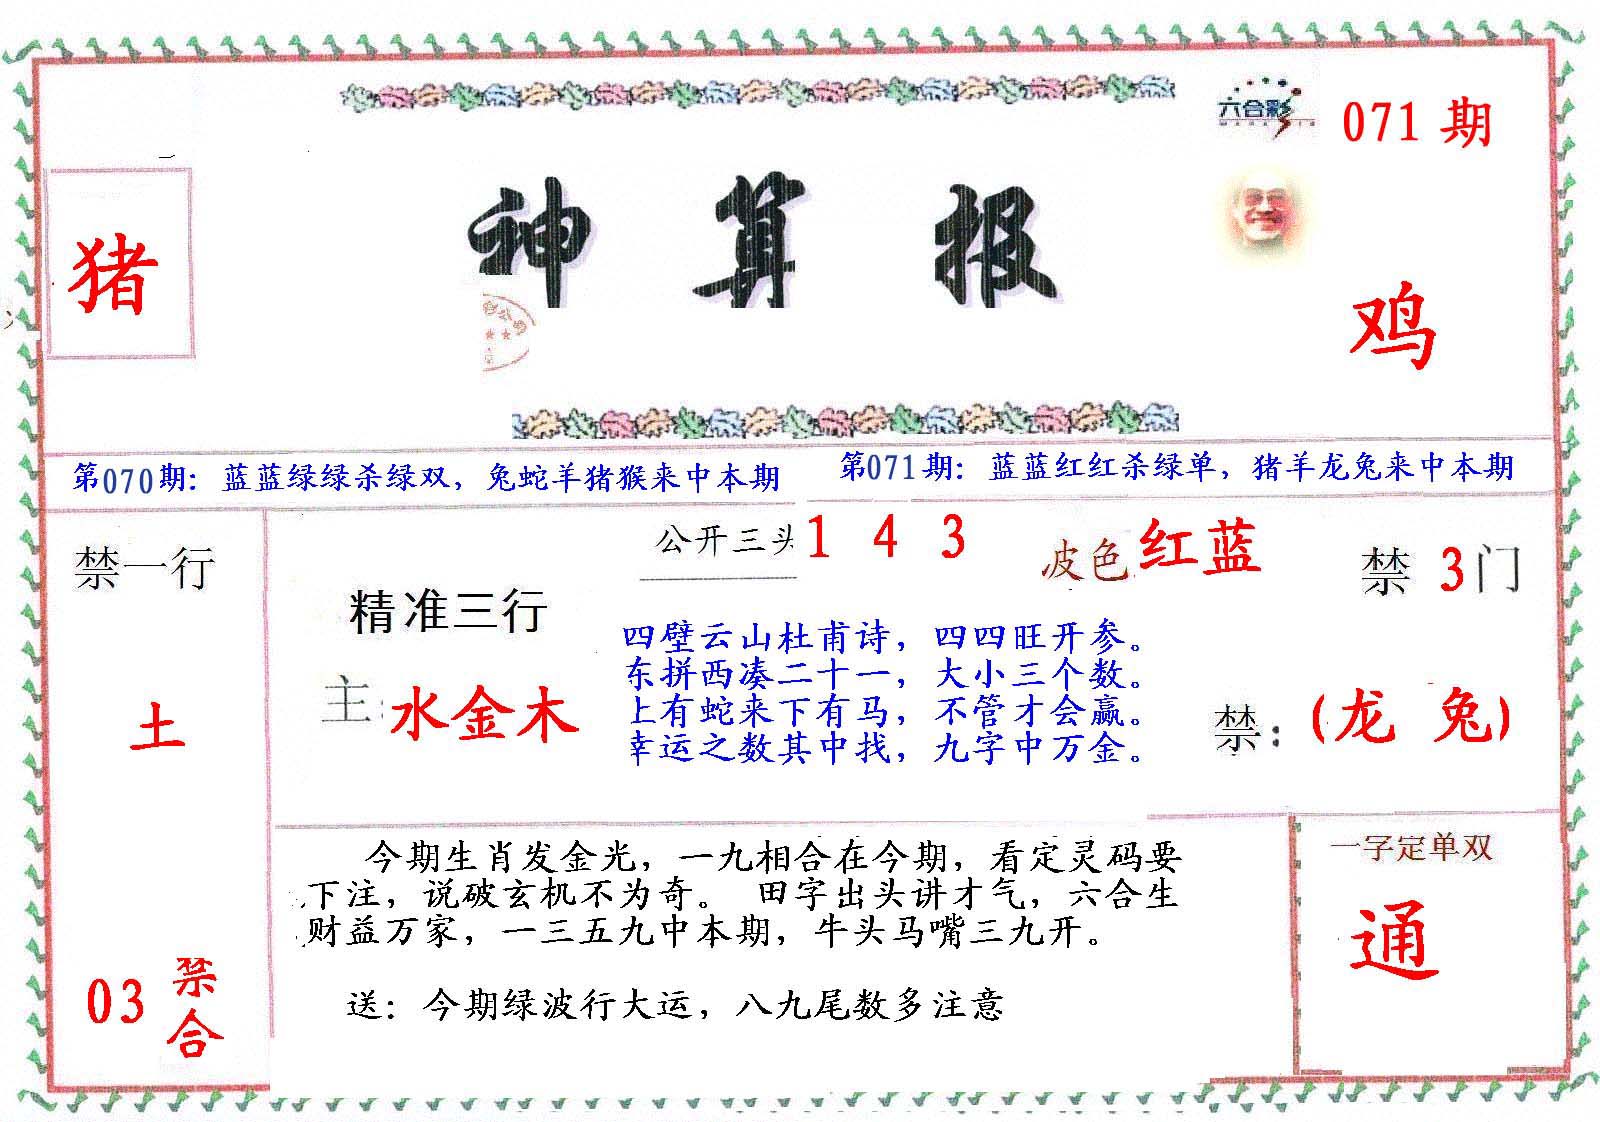 六合彩
071期
神算报
猪
鸡
第070期：蓝蓝绿绿杀绿双，兔蛇羊猪猴来中本期
第071期：蓝蓝红红杀绿单，猪羊龙兔来中本期
禁一行
土
03禁合
精准三行
主:水金木
公开三头143
波色红蓝
禁3门
四壁云山杜甫诗，四四旺开参。
东拼西凑二十一，大小三个数。
上有蛇来下有马，不管才会赢。
幸运之数其中找，九字中万金。
禁:(龙兔)
今期生肖发金光，一九相合在今期，看定灵码要
下注，说破玄机不为奇。 田字出头讲才气，六合生
财益万家，一三五九中本期，牛头马嘴三九开。
送：今期绿波行大运，八九尾数多注意
一字定单双
通